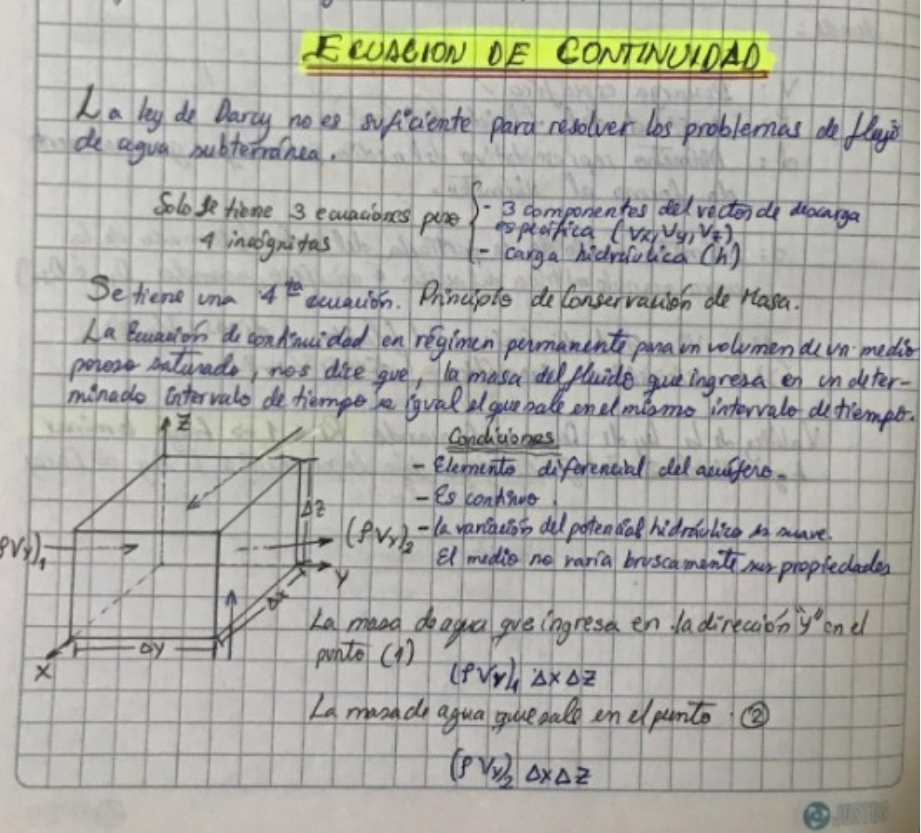 ECUACION DE CONTINUIDAD
La ley de Darcy no es suficiente para resolver los problemas de flujo
de agua subterránea.
Solo se tiene 3 ecuaciones pero
4 incógnitas
- 3 componentes del vector de descarga
específica (Vx, Vy, Vz)
- carga hidráulica (h)
Se tiene una 4ta ecuación. Principio de Conservación de Masa.
La Ecuación de continuidad en régimen permanente para un volumen de un medio
poroso saturado, nos dice que, la masa del fluido que ingresa en un deter-
minado intervalo de tiempo es igual al que sale en el mismo intervalo de tiempo.
Z
ΔZ
(ρVy)1
(ρVy)2
Y
Δx
ΔY
X
Condiciones
- Elemento diferencial del acuífero.
- Es continuo.
- la variación del potencial hidráulico es suave.
El medio no varía bruscamente sus propiedades
La masa de agua que ingresa en la dirección "y" en el
punto (1)
(ρVy)1 ΔX ΔZ
La masa de agua que sale en el punto (2)
(ρVy)2 ΔX ΔZ
JUSTUS